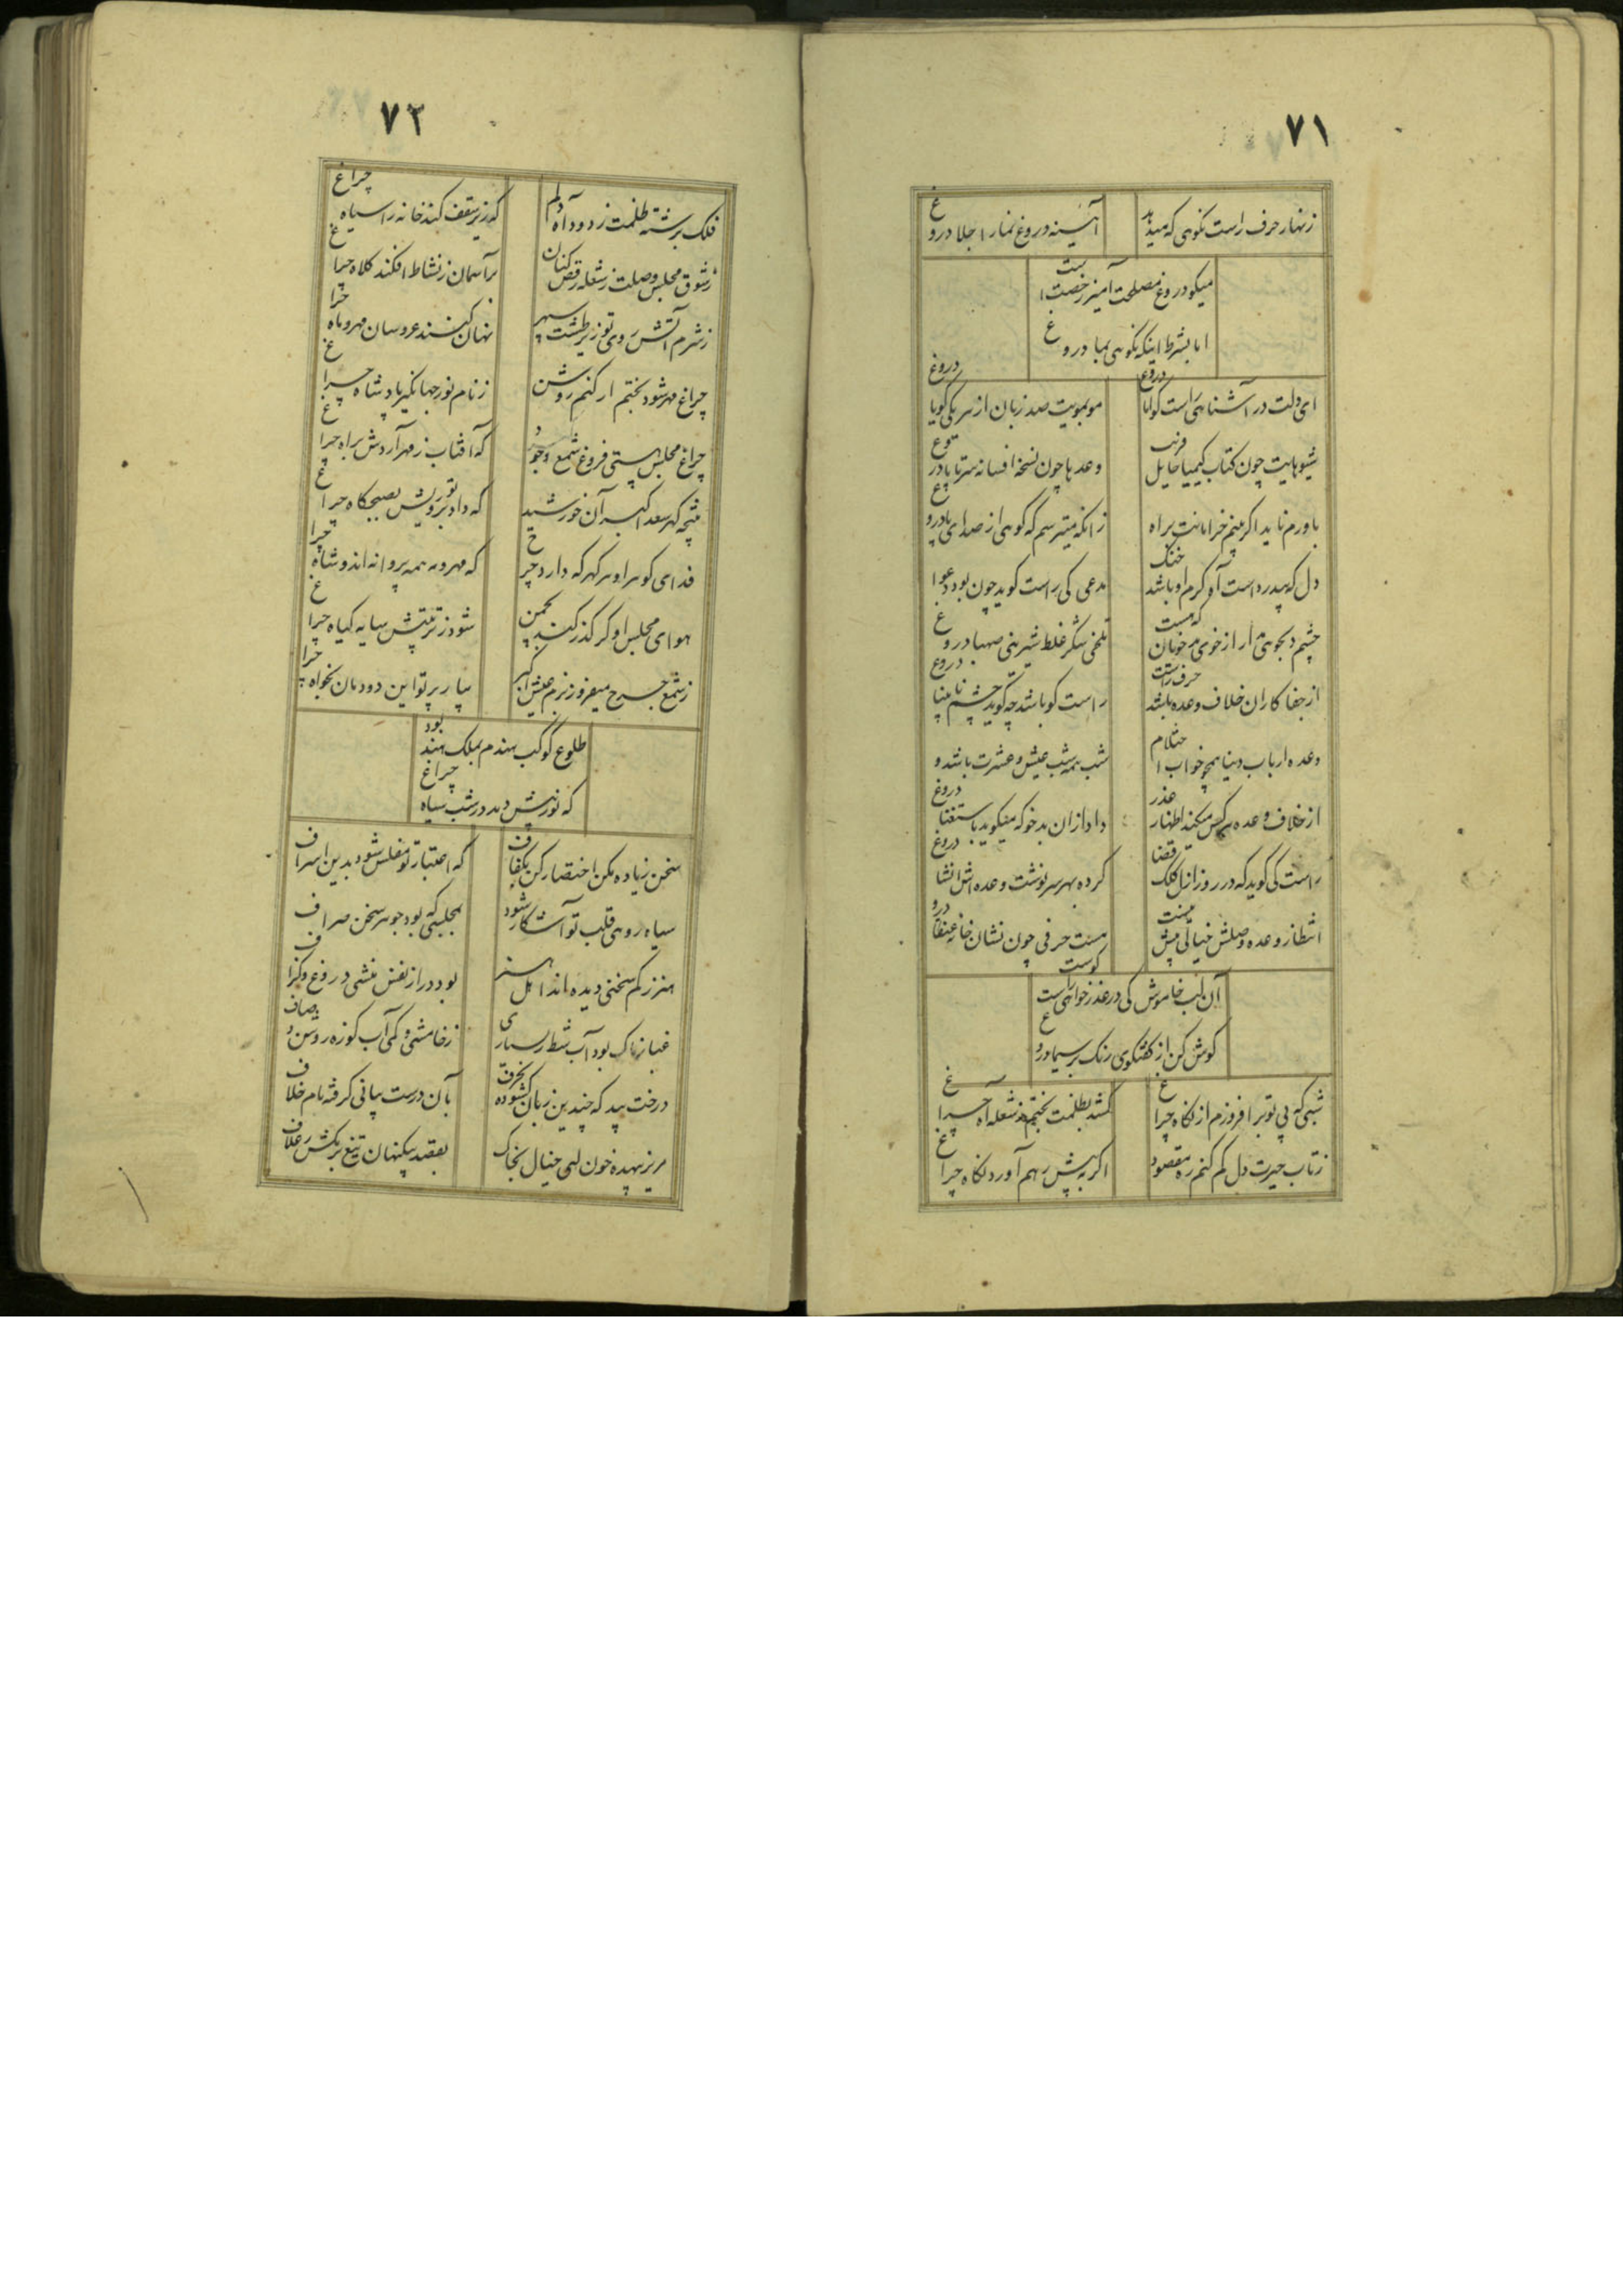 ۷۱
زنهار حرف راست نکوهی که میدهد
آیینه دروغ نما را جلا دروغ
میکو دروغ مصلحت آمیز رخصت است
اما بشرط اینکه نکوهی بما دروغ
ای دلت در آشناهی راست کو اما دروغ
مو بمویت صد زبان از هر یکی کویا دروغ
شیوهایت چون کتاب کیمیا حایل فریب
وعدها چون نسخه افسانه سر تا پا دروغ
باورم ناید اکر بینم خرامانت براه
زانکه میترسم که کوهی از صدای پا دروغ
دل که بیدرد است آه کرم او باشد خنک
مدعی کی راست کوید چون بود دعوا دروغ
چشم دلجوهی مدار از خوی خوبان که هست
تلخی شکر غلط شیرینی صهبا دروغ
از جفا کاران خلاف وعده باشد حرف راست
راست کو باشد چه کوید چشم نابینا دروغ
وعده ارباب دنیا همچو خواب احتلام
شب همه شب عیش و عشرت باشد و
از خلاف وعده هر کس میکند اظهار عذر
داد ازان بدخو که میکوید باستغنا دروغ
راست کی کوید که در روز ازل کلک قضا
کرده بهر سرنوشت وعده اش انشا دروغ
انتظار وعده وصلش خیالی بیش نیست
هست حرفی چون نشان خانه عنقا دروغ
آن لب خاموش کی در عذر خواهی راست کوست
کوش کن از کفتکوی رنک بر سیما دروغ
شبی که بی تو بر افروزم از نکاه چراغ
کشد بظلمت بختم ز شعله آه چراغ
ز تاب حیرت دل کم کنم ره مقصود
اکر به پیش رهم آورد نکاه چراغ
۷۲
فلک برشته ظلمت ز دود آه دلم
که زیر سقف کند خانه را سیاه چراغ
ز شوق مجلس وصلت ز شعله رقص کنان
بر آسمان ز نشاط افکند کلاه چراغ
ز شرم آتش روی تو زیر طشت سپهر
نهان کنند عروسان مهر و ماه چراغ
چراغ مهر شود بختم ار کنم روشن
ز نام نور جهانکیر پادشاه چراغ
چراغ مجلس هستی فروغ شمع وجود
که آفتاب ز مهر آردش براه چراغ
نتیجه کهر سعد اکبر آن خورشید
که داد پرتو رویش بصبحکاه چراغ
فدای کوهر او هر کهر که دارد چرخ
که مهر و مه همه پروانه اند و شاه چراغ
هوای مجلس او کر کذر کند بچمن
شود ز تربتش سایه کیاه چراغ
ز شمع چرخ میفروز بزم عیش اکبر
بیا ز پرتو این دودمان بخواه چراغ
طلوع کوکب هندم بملک هند بود
که نور بیش دهد در شب سیاه چراغ
سخن زیاده مکن اختصار کن بکفاف
که اعتبار تو مفلس شود بدین اسراف
سیاه روهی قلب تو آشکار شود
بمجلسی که بود جوهر سخن صراف
هنر ز کم سخنی دیده اند اهل هنر
بود دراز نفس منشی دروغ و کزاف
غبار ناک بود آب شط ز بسیاری
ز خامشی و کمی آب کوزه روشن و صاف
درخت بید که چندین زبان کشوده بحرف
بآن درست بیانی کرفته نام خلاف
مریز بیهده خون الهی خیال بخاک
بقصد بیکنهان تیغ بر مکش ز غلاف